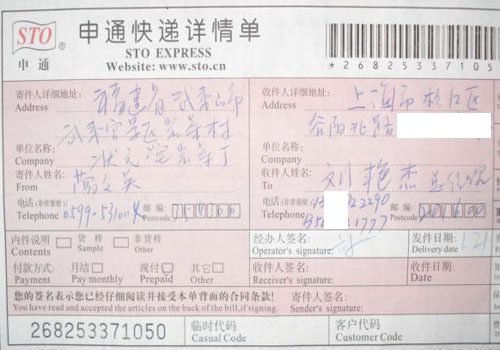 STO ®
申通
申通快递详情单
STO EXPRESS
Website: www.sto.cn
*26825337105
寄件人详细地址:
Address
福建省武夷山市
武夷宫景区岩茶村
单位名称:
Company
状元
岩茶
寄件人姓名:
From
电话(非常重要):
Telephone
0599-
邮编:
Postcode
收件人详细地址:
Address
上海市松江区
谷阳北路
单位名称:
Company
收件人姓名:
To
刘艳杰
电话(非常重要):
Telephone
222290
1777
邮编:
Postcode
201600
内件说明
Contents
货样
Sample
非货样
Other
付款方式:
Payment
月结
Pay monthly
现付
Prepaid
其它
Other
经办人签名:
Operator's signature:
发件日期
Delivery date
1.21
收件人签名:
Receiver's signature:
收件日期:
Date
您的签名表示您已经仔细阅读并接受本单背面的合同条款!
You have read and accepted the articles on the back of the bill,if signing.
寄件人签名:
Sender's signature:
268253371050
临时代码
Casual Code
客户代码
Customer Code